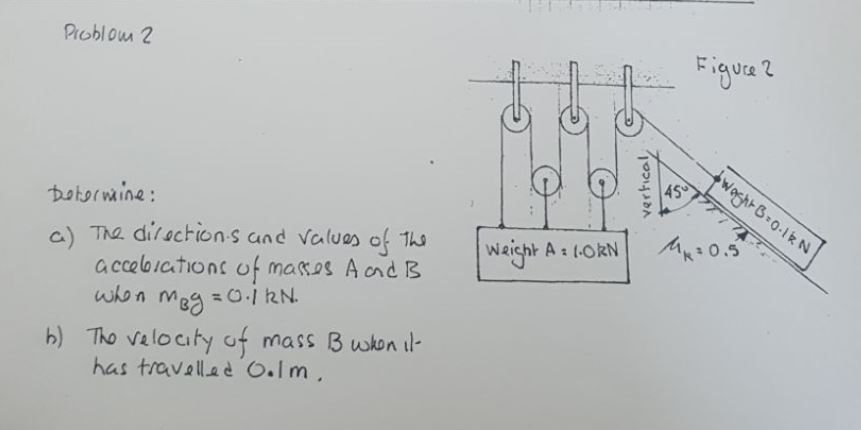 Problem 2
Figure 2
Determine:
a) The directions and values of the
accelerations of masses A and B
when mBg = 0.1 kN.
b) The velocity of mass B when it
has travelled 0.1m.
vertical
45°
Weight A = 1.0kN
Weight B = 0.1kN
μK = 0.5